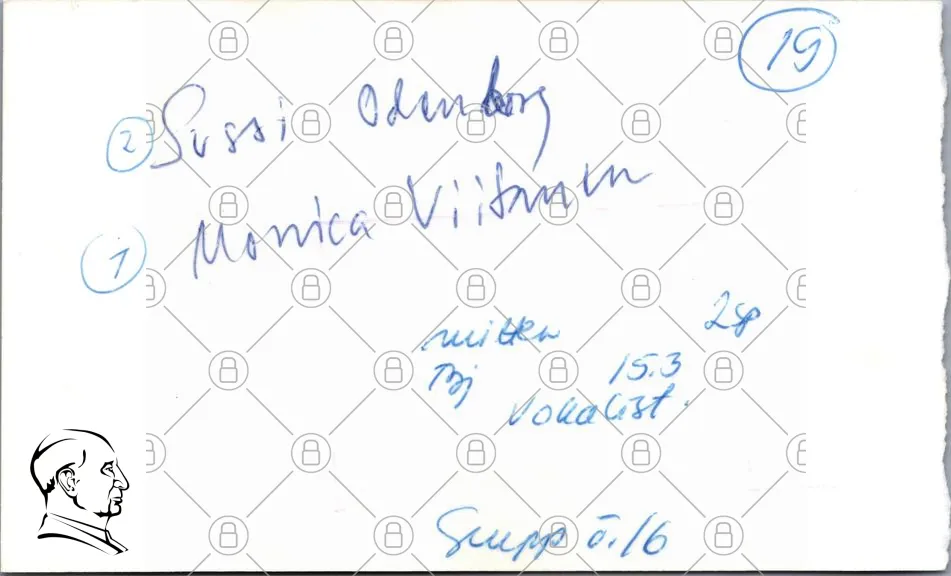 19
2 Sussi Odenborg
1 Monica Viitanen
mitten 2sp
15.3
Vokalist.
Grupp ö. 16